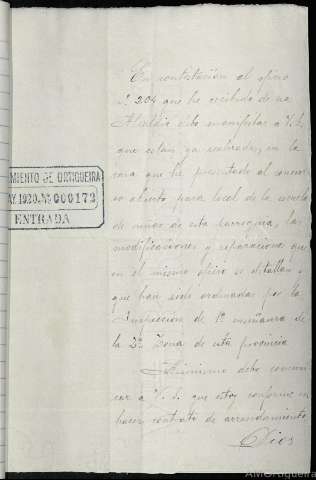 En contestación al oficio
nº 204 que he recibido de esa
Alcaldía debo manifestar a V.
que están ya realizadas, en la
casa que he presentado al concur-
so abierto para local de la escuela
de niños de esta parroquia, las
modificaciones y reparaciones que
en el mismo oficio se detallan y
que han sido ordenadas por la
Inspección de 1ª enseñanza de
la 2ª Zona de esta provincia
Asimismo debo comuni-
car a V. que estoy conforme en
hacer contrato de arrendamiento
Dios
AMIENTO DE ORTIGUEIRA
AY. 1920 Nº 000172
ENTRADA
AMOrtigueira